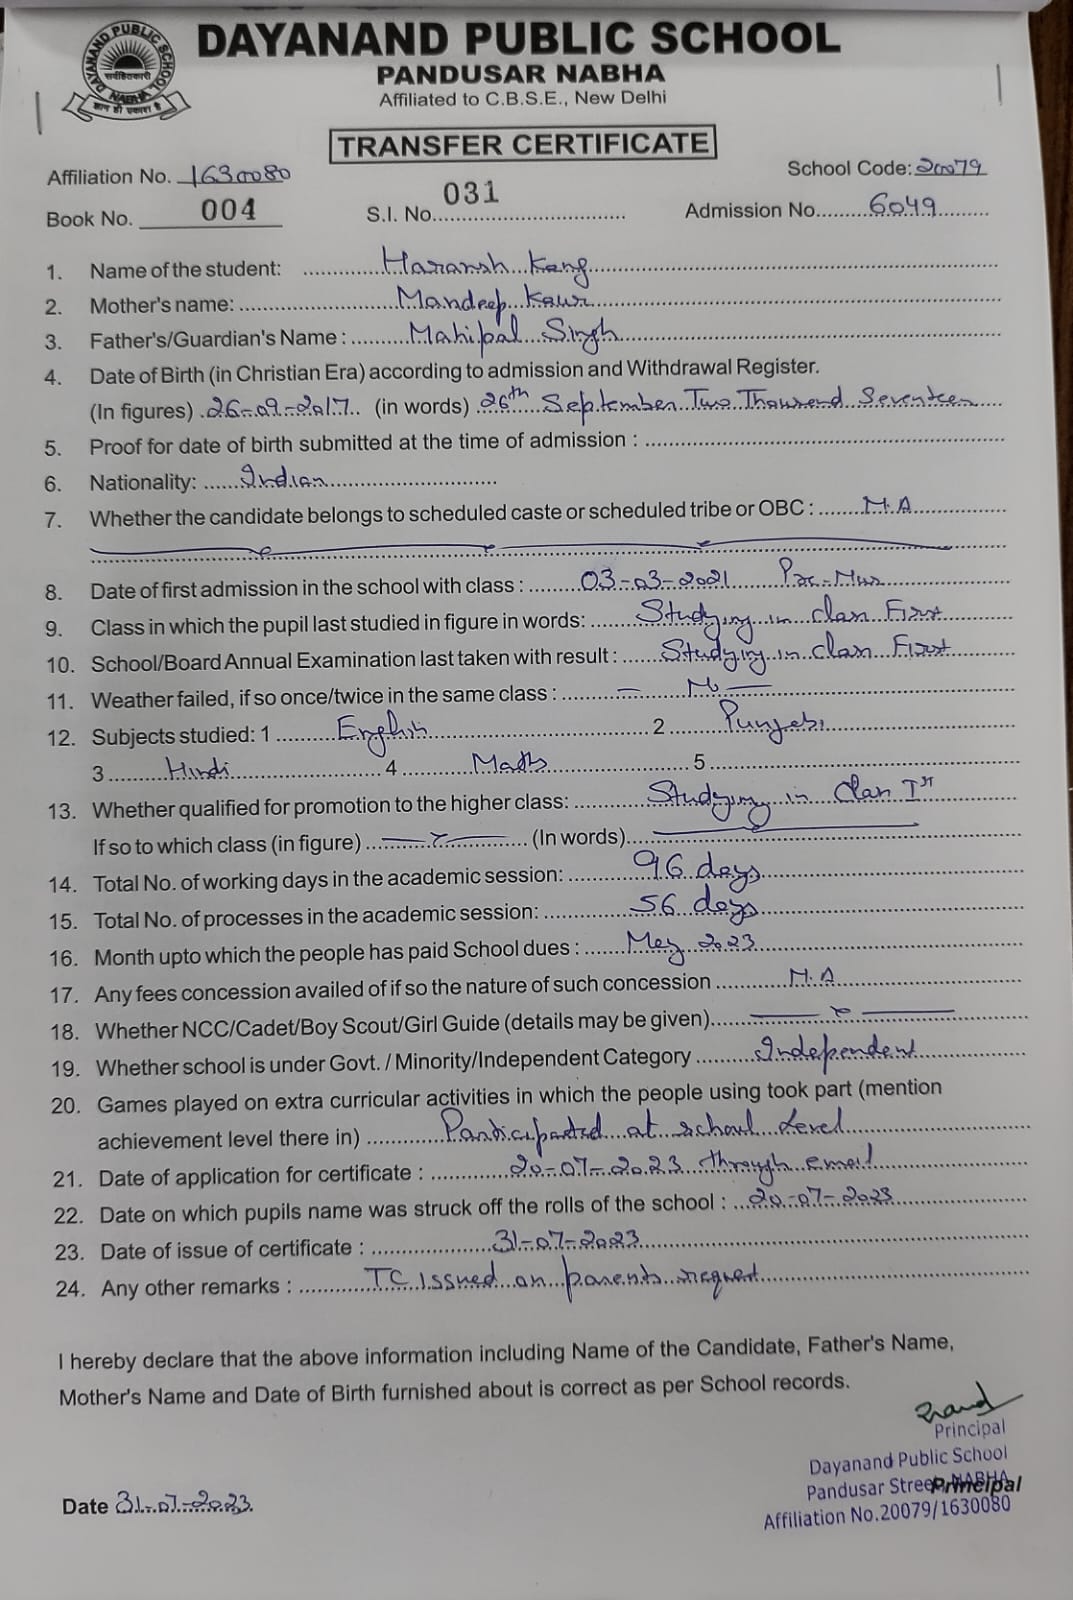 DAYANAND PUBLIC SCHOOL
DAYANAND PUBLIC SCHOOL
NABHA
PANDUSAR NABHA
Affiliated to C.B.S.E., New Delhi
TRANSFER CERTIFICATE
Affiliation No. 1630080
School Code: 20079
Book No. 004
S.I. No. 031
Admission No. 6049
1. Name of the student: Haransh Kang
2. Mother's name: Mandeep Kaur
3. Father's/Guardian's Name : Mahipal Singh
4. Date of Birth (in Christian Era) according to admission and Withdrawal Register.
(In figures) 26-09-2017 (in words) 26th September Two Thousand Seventeen
5. Proof for date of birth submitted at the time of admission :
6. Nationality: Indian
7. Whether the candidate belongs to scheduled caste or scheduled tribe or OBC : N.A
8. Date of first admission in the school with class : 03-03-2021 Pre-Nur
9. Class in which the pupil last studied in figure in words: Studying in class First
10. School/Board Annual Examination last taken with result : Studying in class First
11. Weather failed, if so once/twice in the same class : — No —
12. Subjects studied: 1 English 2 Punjabi
3 Hindi 4 Maths 5
13. Whether qualified for promotion to the higher class: Studying in Class Ist
If so to which class (in figure) (In words)
14. Total No. of working days in the academic session: 96 days
15. Total No. of processes in the academic session: 56 days
16. Month upto which the people has paid School dues : May 2023
17. Any fees concession availed of if so the nature of such concession N.A
18. Whether NCC/Cadet/Boy Scout/Girl Guide (details may be given)
19. Whether school is under Govt. / Minority/Independent Category Independent
20. Games played on extra curricular activities in which the people using took part (mention
achievement level there in) Participated at school Level
21. Date of application for certificate : 20-07-2023 through email
22. Date on which pupils name was struck off the rolls of the school : 20-07-2023
23. Date of issue of certificate : 31-07-2023
24. Any other remarks : TC Issued on parents request
I hereby declare that the above information including Name of the Candidate, Father's Name,
Mother's Name and Date of Birth furnished about is correct as per School records.
Principal
Dayanand Public School
Pandusar Street, NABHA
Principal
Affiliation No.20079/1630080
Date 31-07-2023